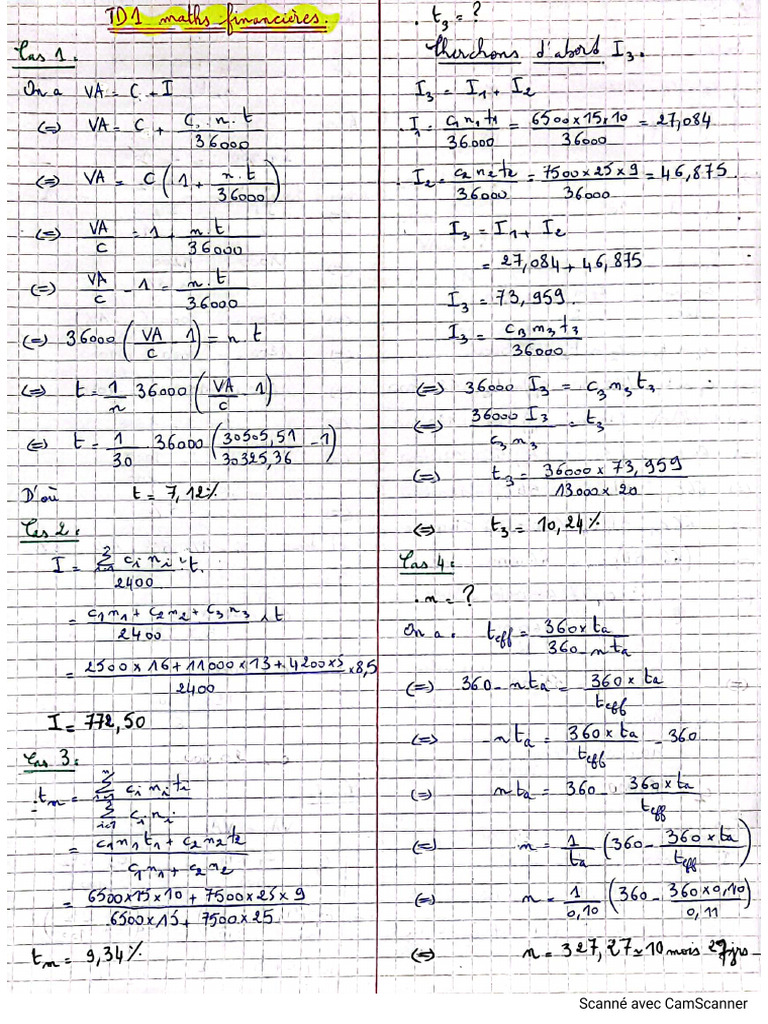 TD1 maths financières.
Cas 1:
On a VA = C + I
(=) VA = C + C. n. t / 36000
(=) VA = C (1 + n. t / 36000)
(=) VA / C = 1 + n. t / 36000
(=) VA / C - 1 = n. t / 36000
(=) 36000 (VA / C - 1) = n. t
(=) t = 1/n 36000 (VA / C - 1)
(=) t = 1/30 36000 (30505,51 / 30325,36 - 1)
D'où t = 7,12%
Cas 2:
I = Σ ci ni . t / 2400
= C1n1 + C2n2 + C3n3 / 2400 x t
= 2500 x 16 + 11000 x 13 + 4200 x 5 / 2400 x 8,5
I = 772,50
Cas 3:
. tm = Σ ci ni ti / Σ ci ni
= C1n1t1 + C2n2t2 / C1n1 + C2n2
= 6500x15x10 + 7500x25x9 / 6500x15 + 7500x25
tm = 9,34%
. t3 = ?
Cherchons d'abord I3.
I3 = I1 + I2
. I1 = C1n1t1 / 36000 = 6500x15x10 / 36000 = 27,084
. I2 = C2n2t2 / 36000 = 7500x25x9 / 36000 = 46,875
I3 = I1 + I2
= 27,084 + 46,875
I3 = 73,959
I3 = C3n3t3 / 36000
(=) 36000 I3 = C3n3t3
(=) 36000 I3 / C3n3 = t3
(=) t3 = 36000 x 73,959 / 13000 x 20
(=) t3 = 10,24%
Cas 4:
. n = ?
On a: teff = 360 x ta / 360 - nta
(=) 360 - nta = 360 x ta / teff
(=) - nta = 360 x ta / teff - 360
(=) nta = 360 - 360 x ta / teff
(=) n = 1/ta (360 - 360 x ta / teff)
(=) n = 1/0,10 (360 - 360x0,10 / 0,11)
(=) n = 327,27 ≃ 10 mois 27 jrs
Scanné avec CamScanner